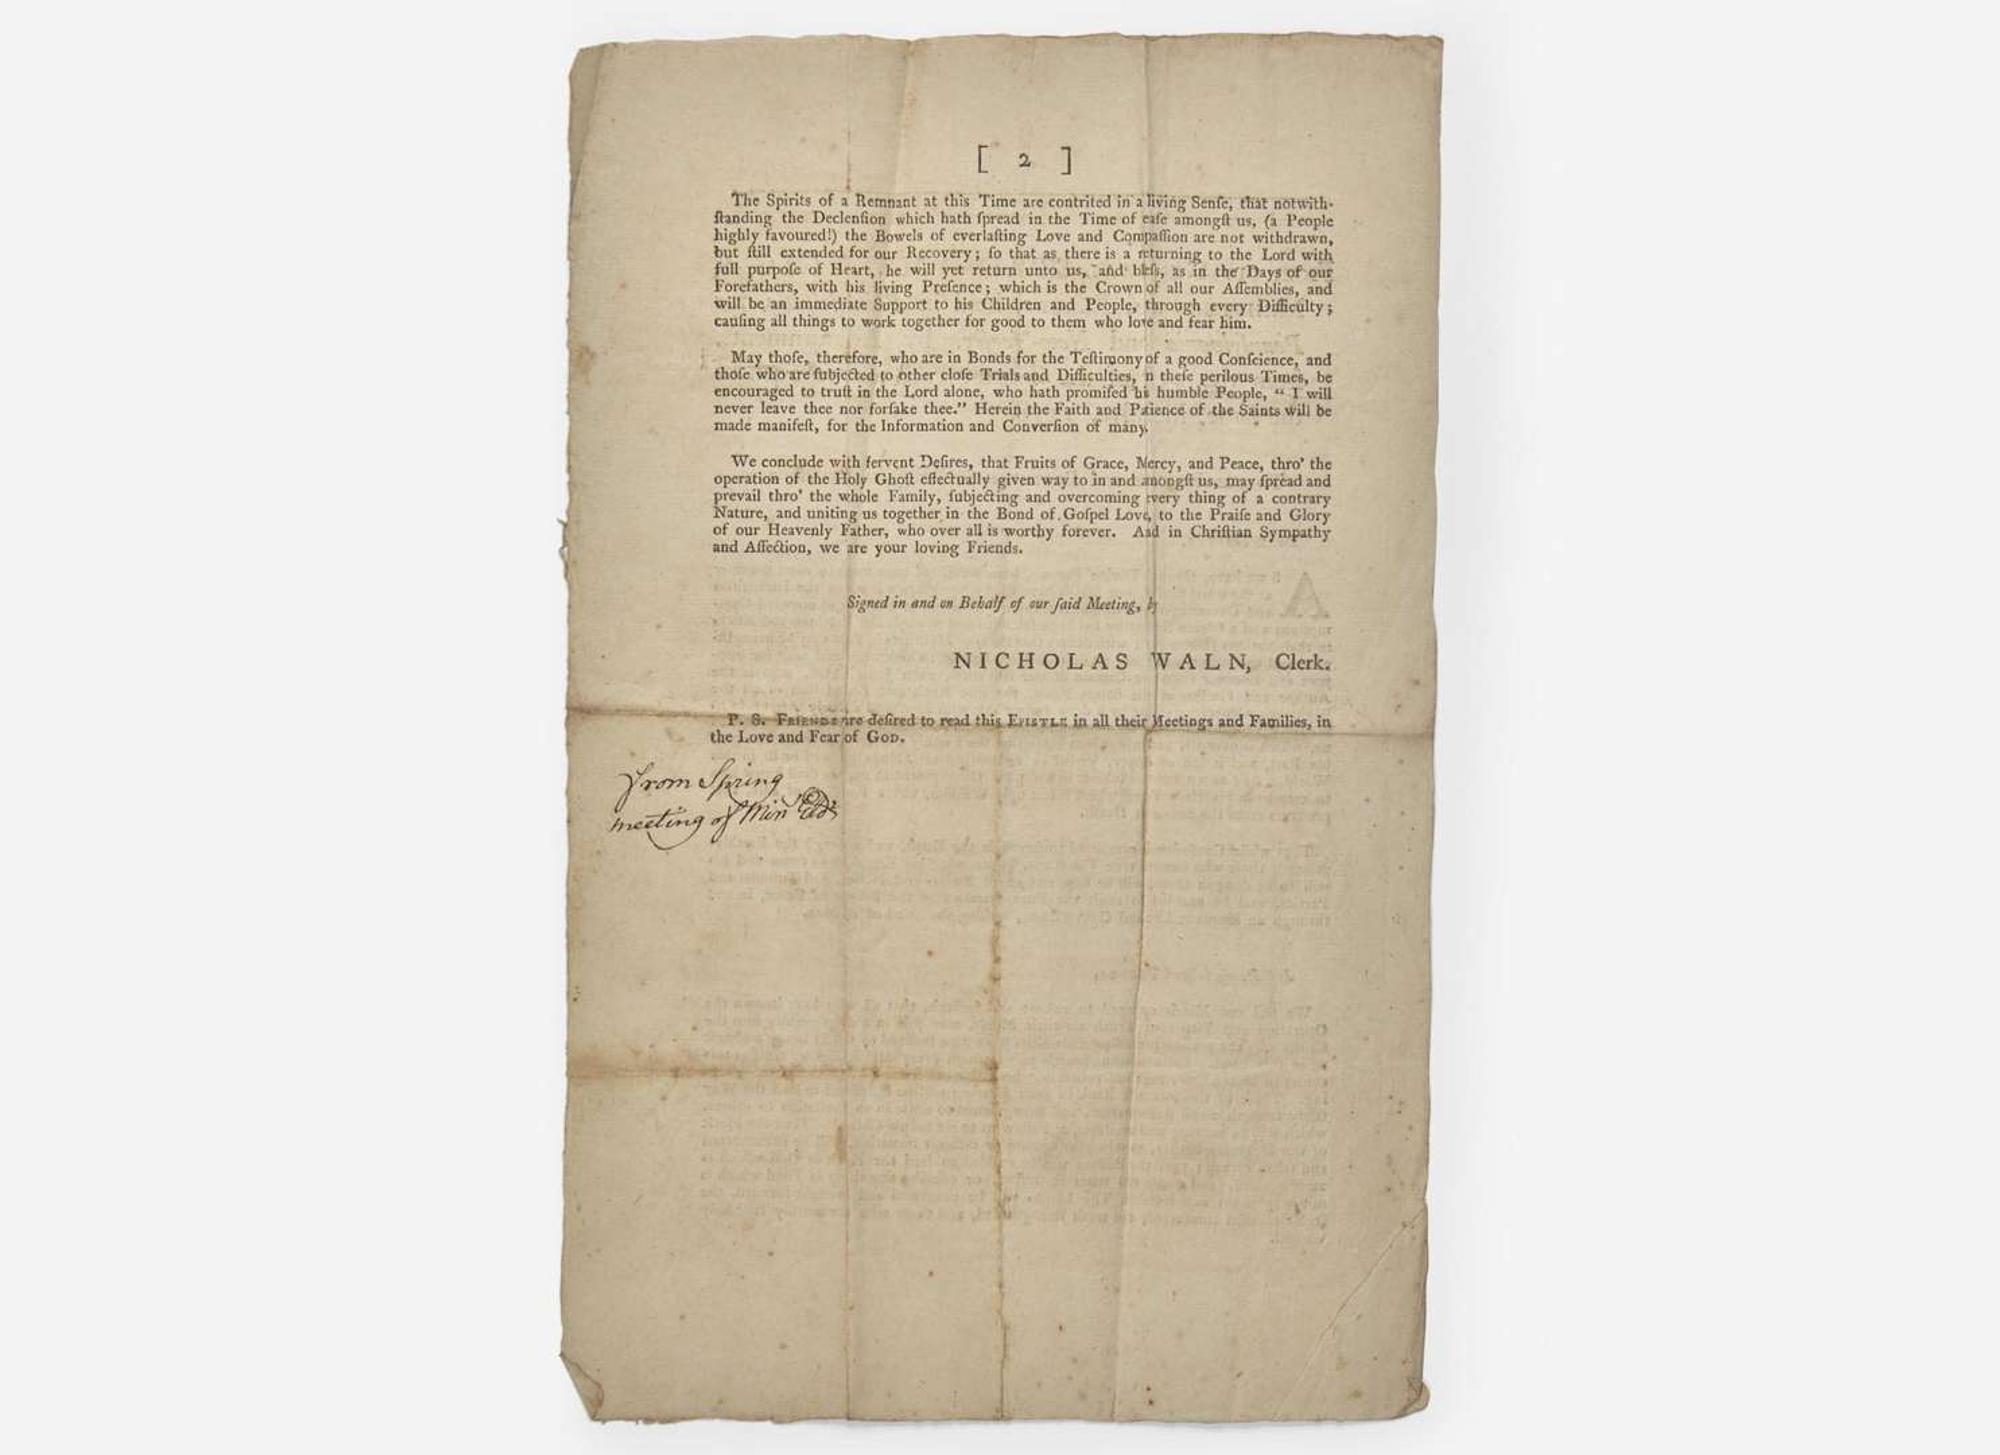 [ 2 ]
The Spirits of a Remnant at this Time are contrited in a living Senſe, that notwith-
ſtanding the Declenſion which hath ſpread in the Time of eaſe amongſt us, (a People
highly favoured!) the Bowels of everlaſting Love and Compaſſion are not withdrawn,
but ſtill extended for our Recovery; ſo that as there is a returning to the Lord with
full purpoſe of Heart, he will yet return unto us, and bleſs, as in the Days of our
Forefathers, with his living Preſence; which is the Crown of all our Aſſemblies, and
will be an immediate Support to his Children and People, through every Difficulty;
cauſing all things to work together for good to them who love and fear him.
May thoſe, therefore, who are in Bonds for the Teſtimony of a good Conſcience, and
thoſe who are ſubjected to other cloſe Trials and Difficulties, n theſe perilous Times, be
encouraged to truſt in the Lord alone, who hath promiſed his humble People, “ I will
never leave thee nor forſake thee.” Herein the Faith and Patience of the Saints will be
made manifeſt, for the Information and Converſion of many.
We conclude with fervent Deſires, that Fruits of Grace, Mercy, and Peace, thro’ the
operation of the Holy Ghoſt effectually given way to in and amongſt us, may ſpread and
prevail thro’ the whole Family, ſubjecting and overcoming every thing of a contrary
Nature, and uniting us together in the Bond of Goſpel Love, to the Praiſe and Glory
of our Heavenly Father, who over all is worthy forever. And in Chriſtian Sympathy
and Affection, we are your loving Friends.
Signed in and on Behalf of our ſaid Meeting, by
NICHOLAS WALN, Clerk.
P. S. FRIENDS are deſired to read this EPISTLE in all their Meetings and Families, in
the Love and Fear of GOD.
From Spring
meeting of Min